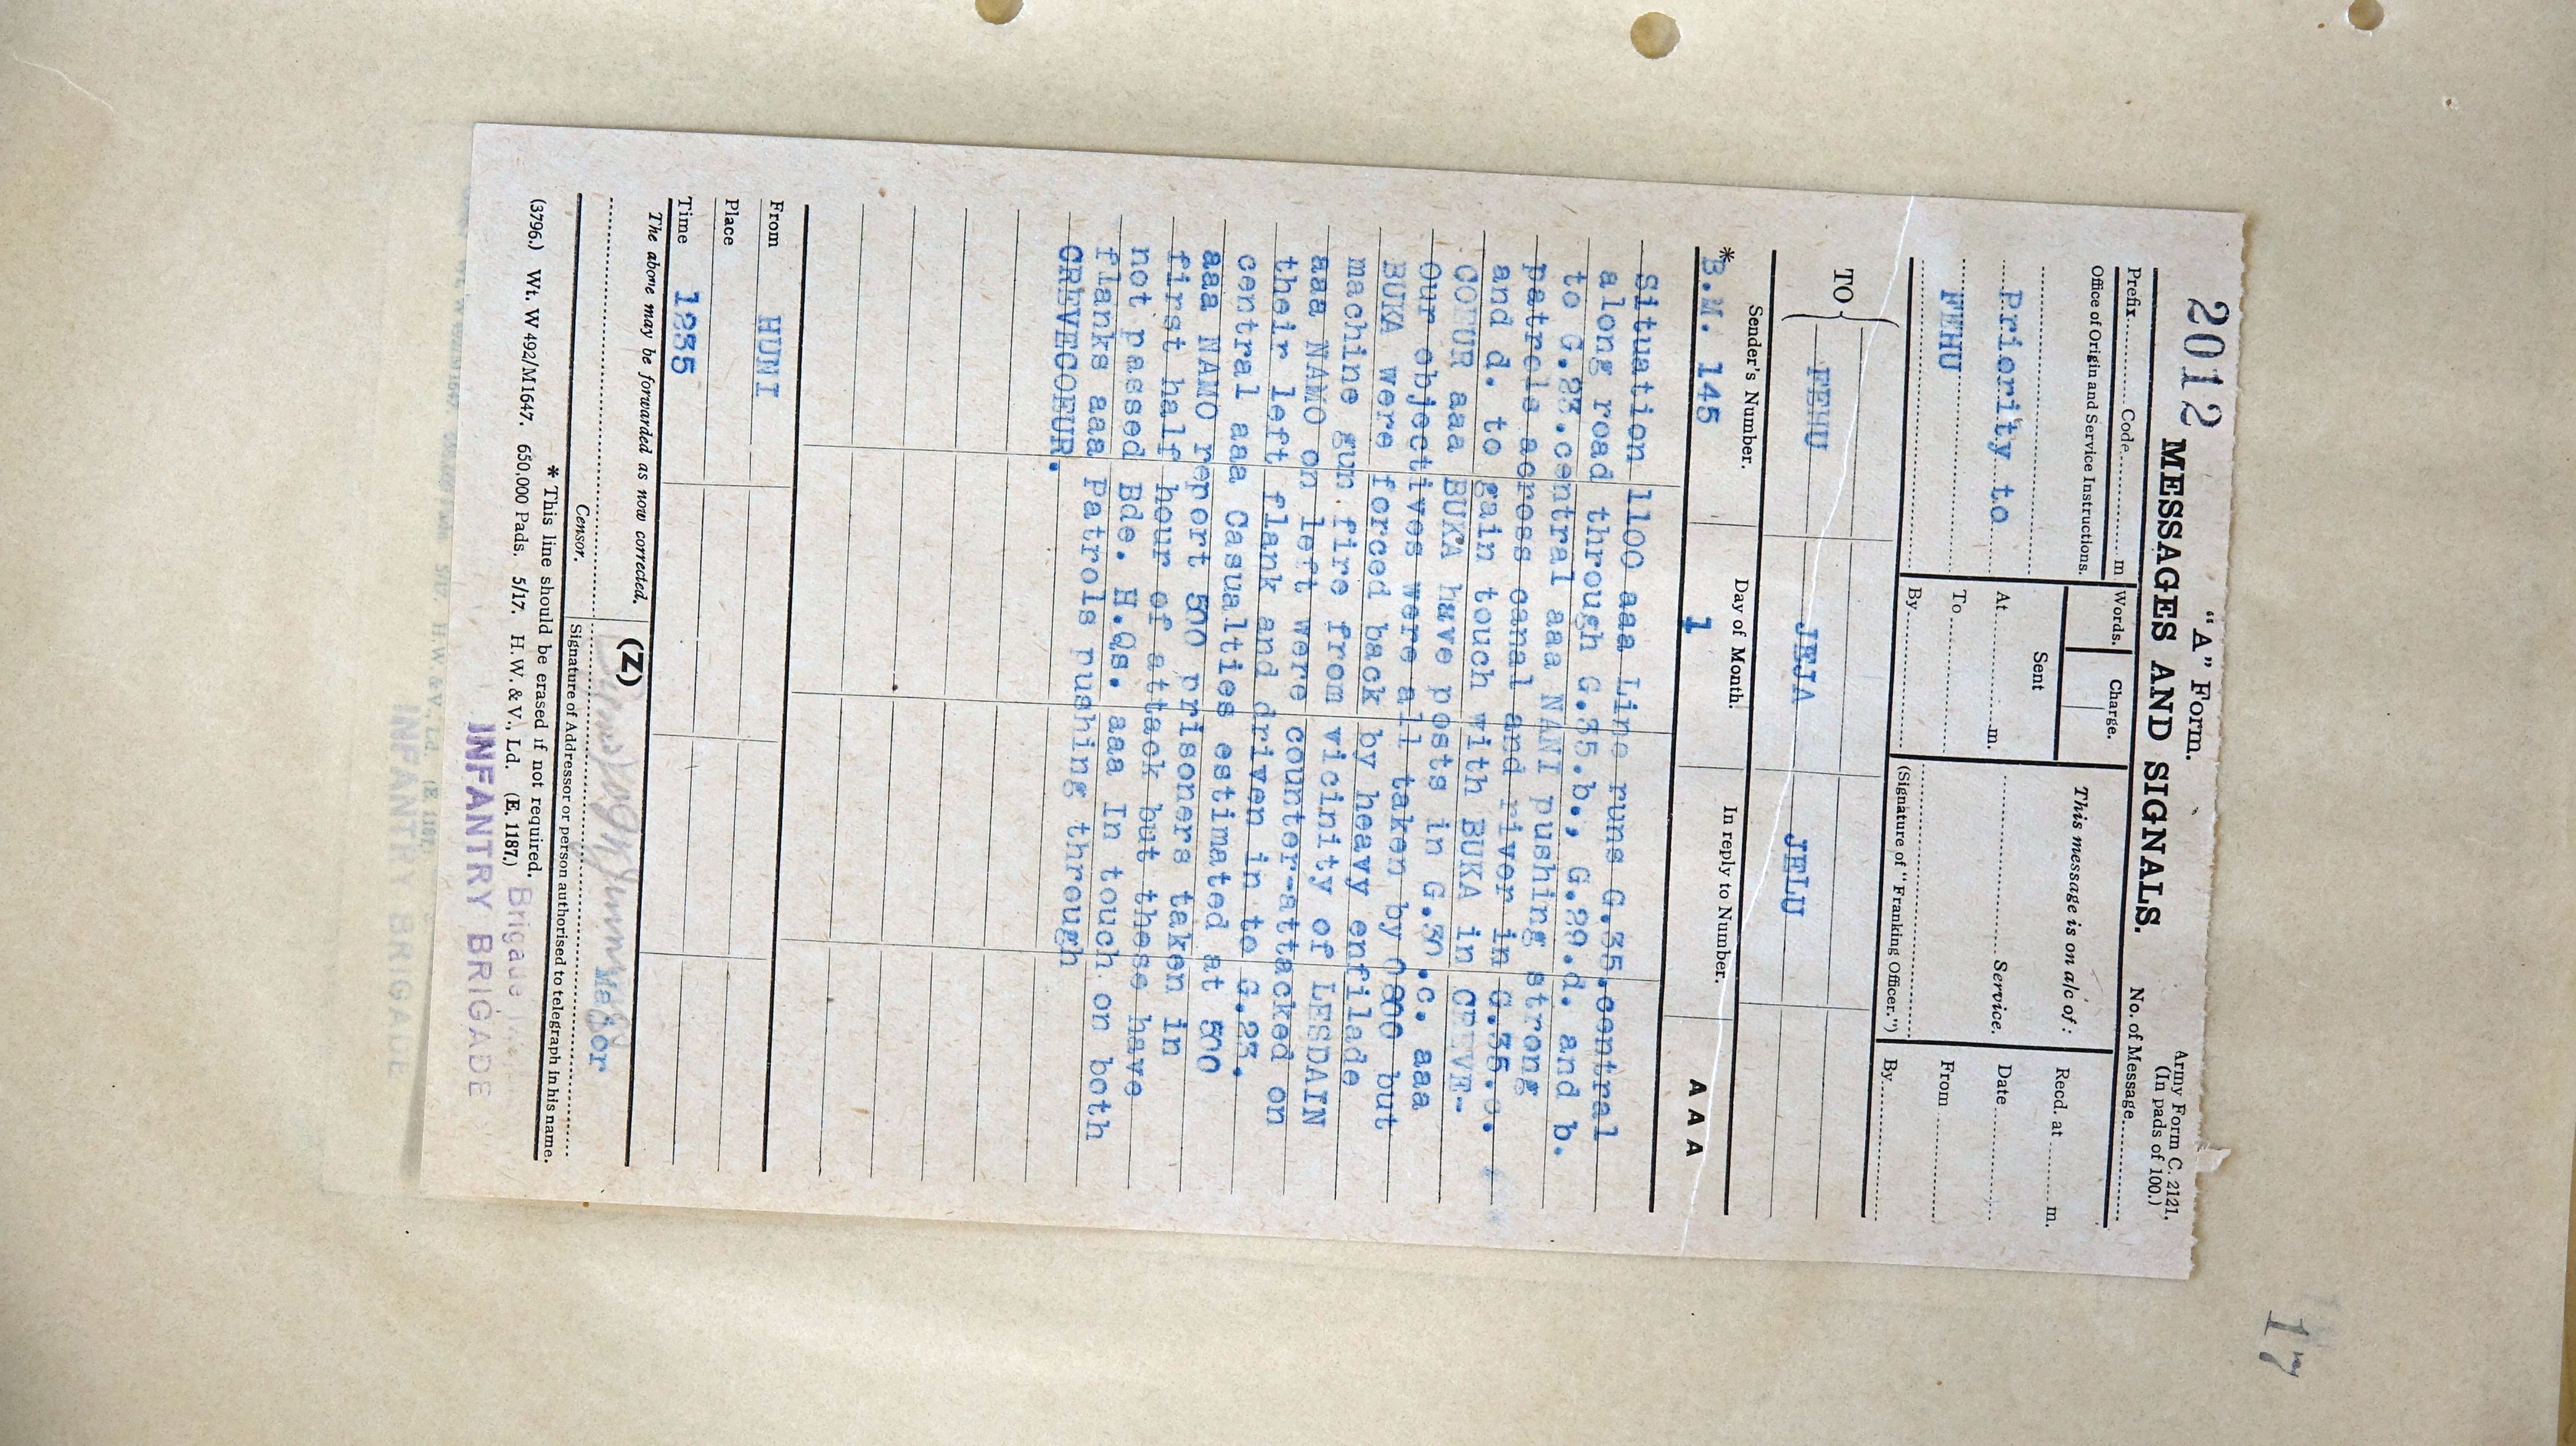 17
2012
"A" Form.
Army Form C. 2121.
(In pads of 100.)
MESSAGES AND SIGNALS.
No. of Message
Prefix Code m
Words.
Charge.
This message is on a/c of :
Recd. at m.
Office of Origin and Service Instructions.
Sent
Service.
Date
Priority to
At m.
From
FEHU
To
By
(Signature of "Franking Officer.")
By
TO
FEHU JEJA JELU
Sender's Number. Day of Month. In reply to Number.
*B.M. 145 1 AAA
Situation 1100 aaa Line runs G.35.central
along road through G.35.b., G.29.d. and b.
to G.23.central aaa NANI pushing strong
patrols across canal and river in G.35.
and d. to gain touch with BUKA in CREVE-
COEUR aaa BUKA have posts in G.30.c. aaa
Our objectives were all taken by 0800 but
BUKA were forced back by heavy enfilade
machine gun fire from vicinity of LESDAIN
aaa NAMO on left were counter-attacked on
their left flank and driven in to G.23.
central aaa Casualties estimated at 500
aaa NAMO report 500 prisoners taken in
first half hour of attack but these have
not passed Bde. H.Qs. aaa In touch on both
flanks aaa Patrols pushing through
CREVECOEUR.
From HUNI
Place
Time 1235
The above may be forwarded as now corrected. (Z)
Major
Censor. Signature of Addressor or person authorised to telegraph in his name.
* This line should be erased if not required.
(3796.) Wt. W 492/M1647. 650,000 Pads. 5/17. H.W. & V., Ld. (E. 1187.)
Brigade
INFANTRY BRIGADE
INFANTRY BRIGADE